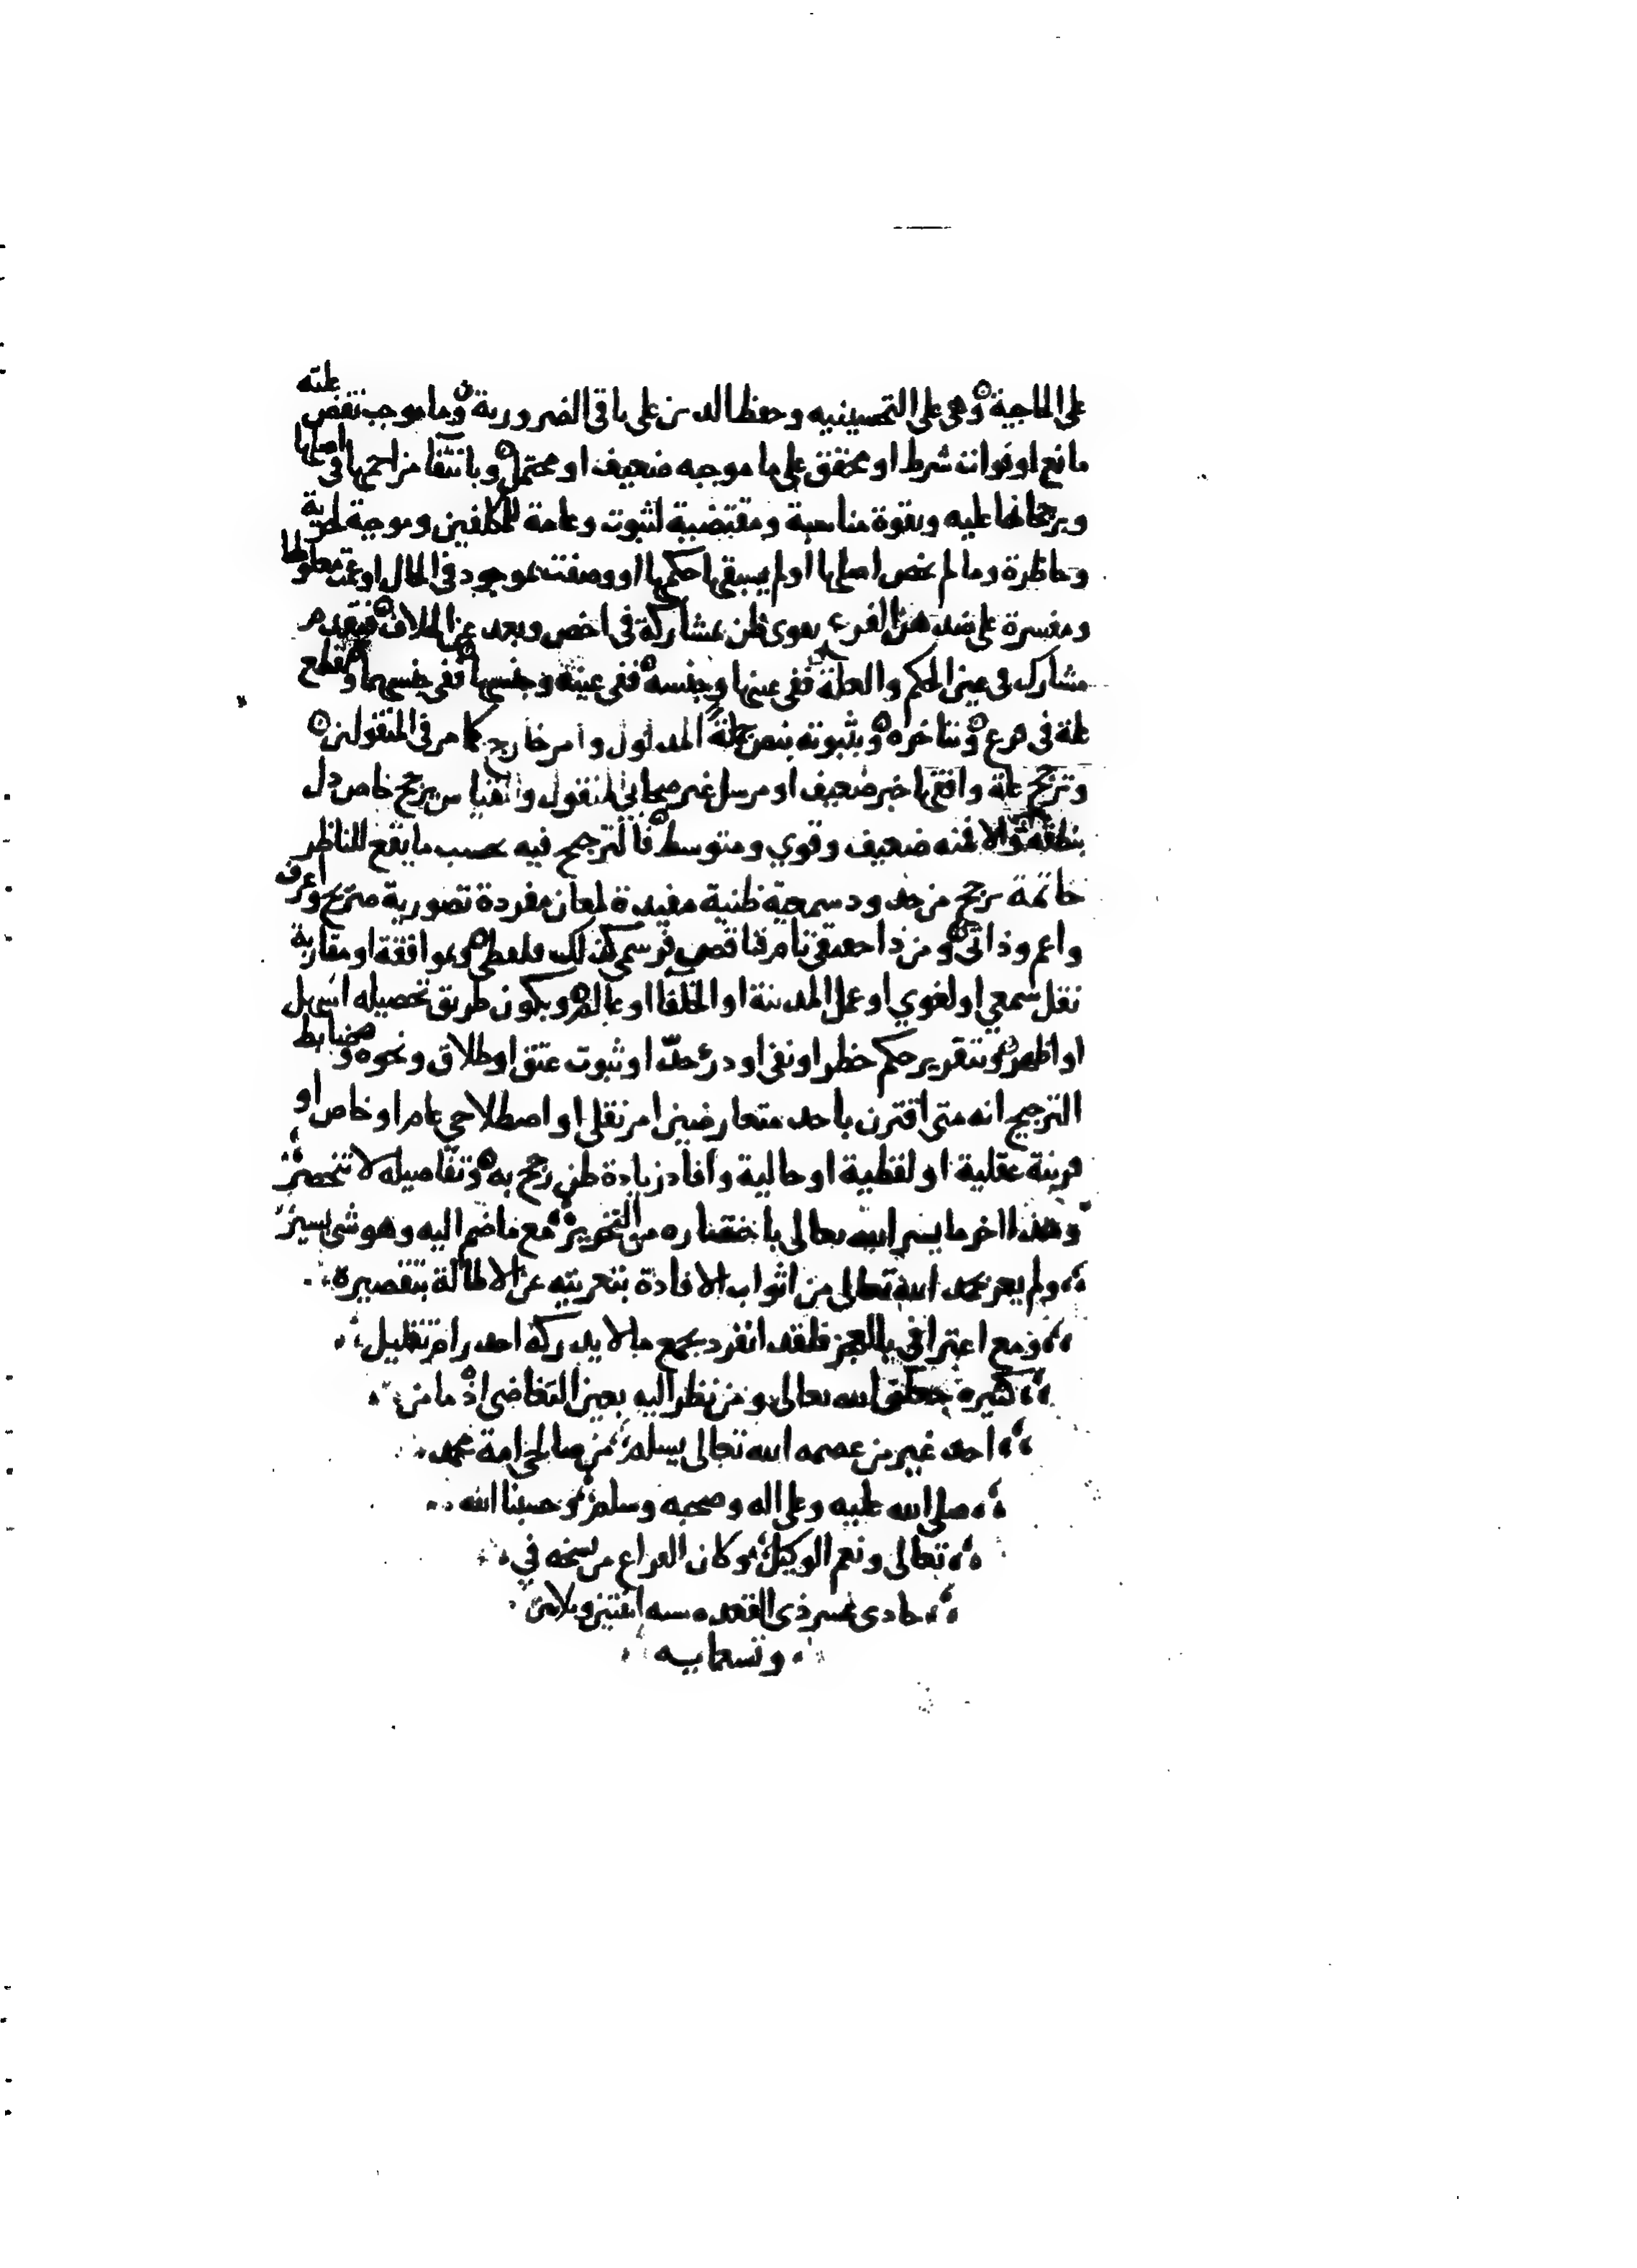 على الحاجية وهي على التحسينيه وحفظ الدين على باقي الضرورية وما موجب نقض علته
مانع او فوات شرط او محقق على ما موجبه ضعيف او محتمل وبانتفا مزاحمها في اصلها
وبرجحانها عليه وبقوة مناسبة ومقتضية لثبوت وعامة للمكلفين وموجبة لحرية
وحاظرة وما لم يخص اصلها او لم يسبقها حكمها او وصفت بموجود في الحال او عمت معلولها
ومفسرة على ضدهن الفرع يقوى ظن بمشاركة في اخص وبعد عن الخلاف فيقدم
مشارك في عين الحكم والعلة ففي عينها وجنسه ففي عينه وجنسها ففي جنسهما وبقطع
علة في فرع وبتاخره وبثبوته بنص جملة المدلول وامر خارج كما مر في المنقولين
وترجح علة وافقها خبر ضعيف او مرسل غير صحابي المنقول والقياس يرجح خاص دل
بنطقه والا فمنه ضعيف وقوي ومتوسط فالترجيح فيه بحسب ما يقع للناظر
خاتمة يرجح من حدود سمعية ظنية مفيدة لمعان مفردة تصورية صريح واعرف
واعم وذاتي ومن ذا حقيقي تام فناقص فرسمي كذلك فلفظي وبموافقة او مقاربة
نقل سمعي او لغوي او عمل المدينة او الخلفا او عالم وبكون طريق تحصيله اسهل
او اظهر وبتقرير حكم حظر او نفي او درء حد او ثبوت عتق او طلاق ونحوه وضابط
الترجيح انه متى اقترن باحد متعارضين امر نقلي او اصطلاحي عام او خاص او
قرينة عقلية او لفظية او حالية وافاد زيادة ظن رجح به وتفاصيله لا تنحصر
وهذا اخر ما يسر الله تعالى باختصاره من التحرير مع ما ضم اليه وهو شي يسير
ولم يعر بحمد الله تعالى من اثواب الافادة بتعريته عن الاطالة بتقصيره
ومع اعترافي بالعجز فلقد انفرد بجمع ما لا يدركه احد رام تقليل
كثيره الله تعالى ومن نظر اليه بعين التغاضي اذ ما من
احد غير من عصمه الله تعالى يسلم من صالحي امة محمد
صلى الله عليه وعلى اله وصحبه وسلم وحسبنا الله
تعالى ونعم الوكيل وكان الفراغ من نسخه في
حادى عشر ذى القعده سنه اثنتين وثلاثين
وتسعمايه